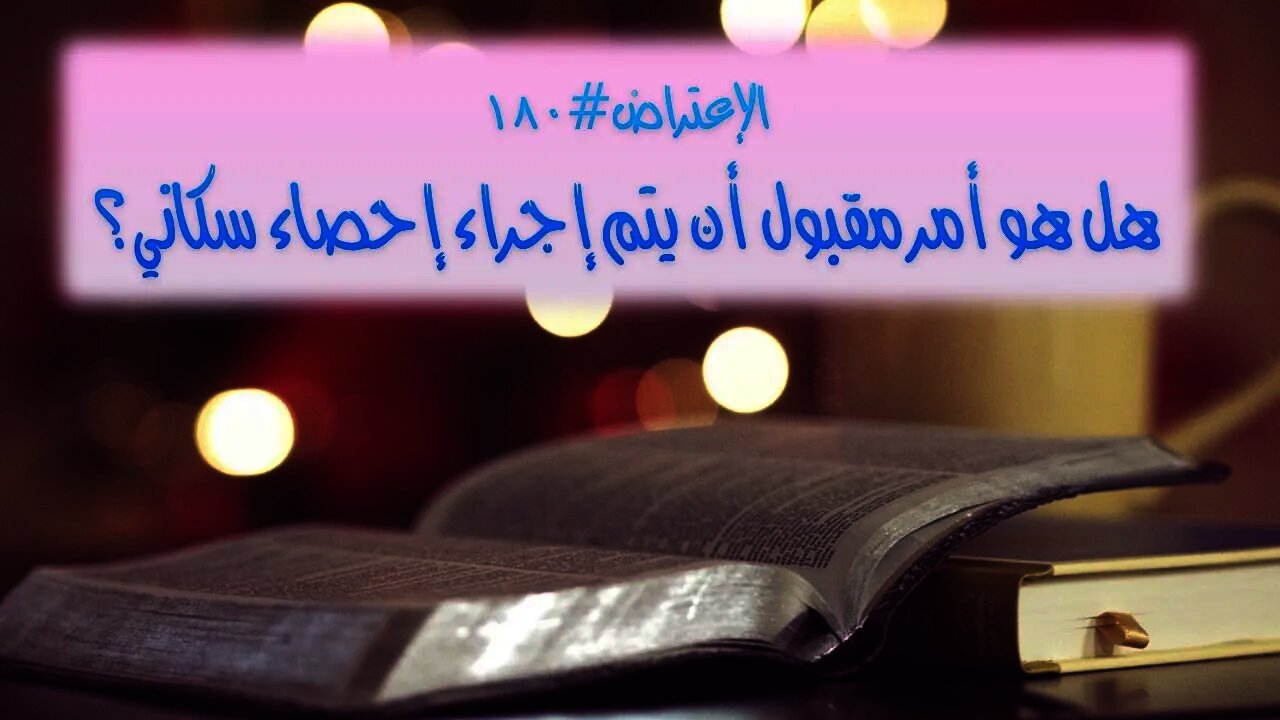 الإعتراض#١٨٠
هل هو أمر مقبول أن يتم إجراء إحصاء سكاني؟